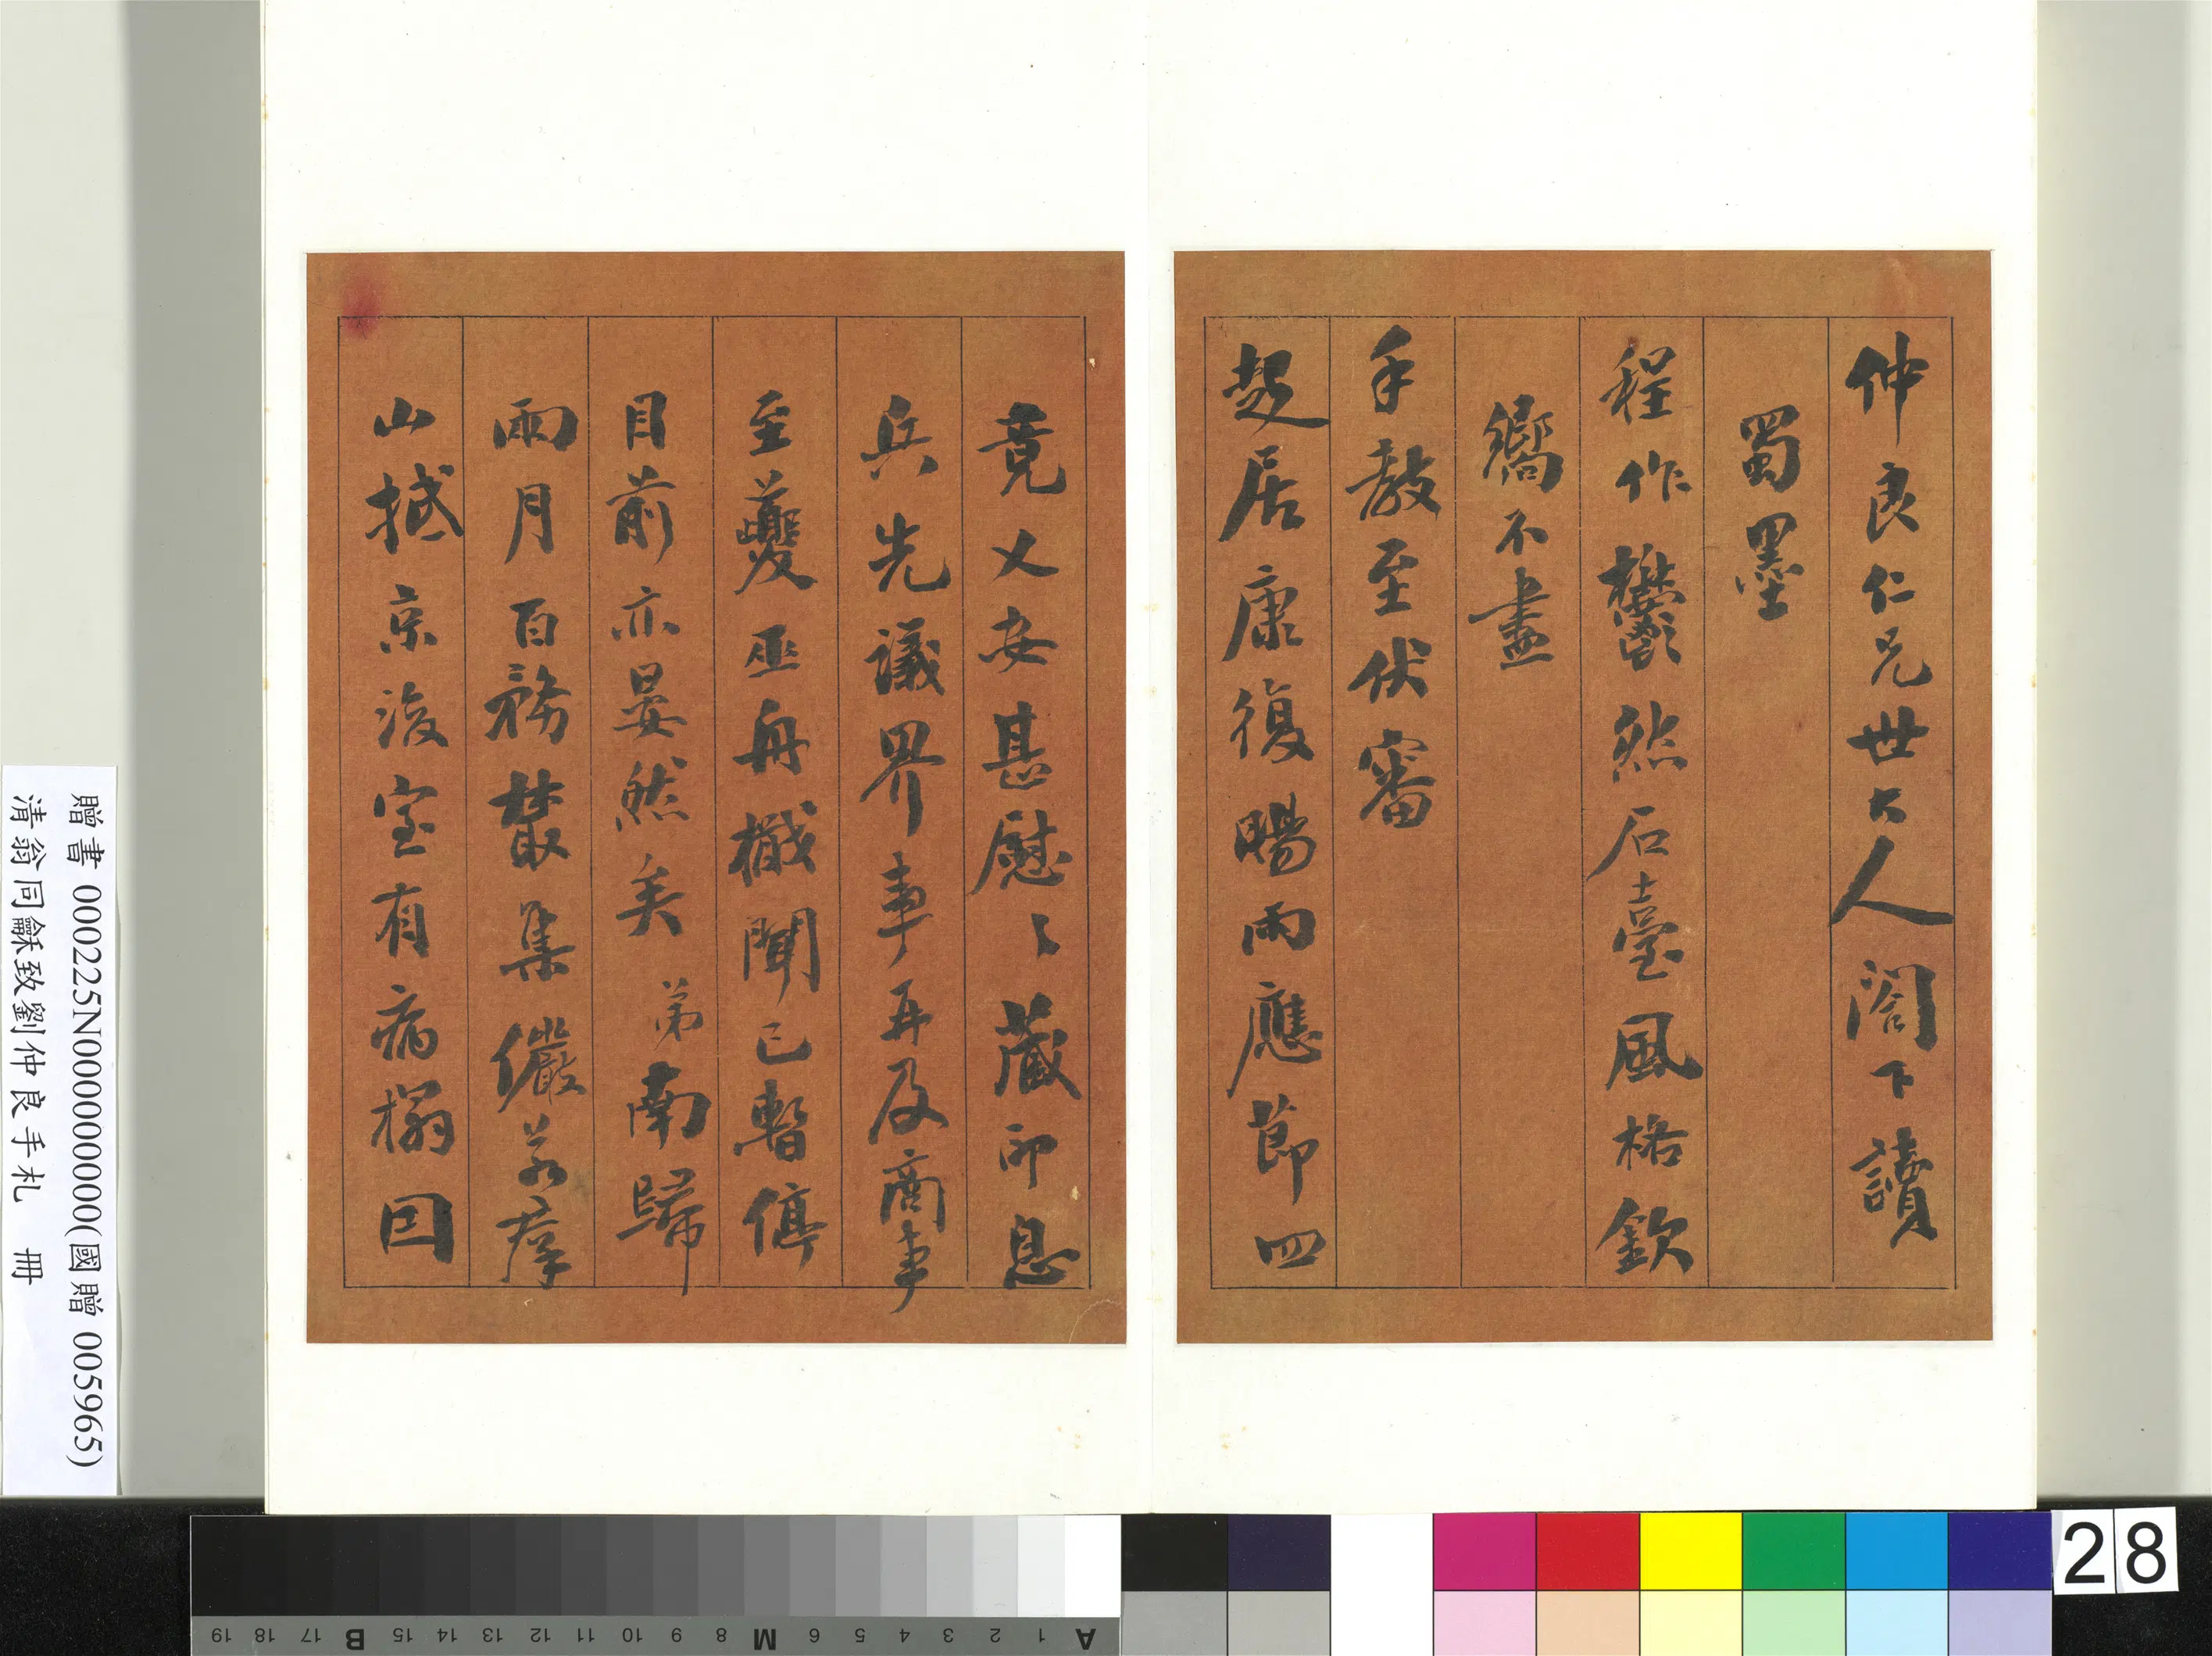 仲良仁兄世大人閣下讀
蜀墨
程作鬱然石臺風格欽
嚮不盡
手教至伏審
起居康復暘雨應節四
竟乂安甚慰〻藏印息
兵先議界事再及商事
至夔巫舟檝聞已暫停
目前亦晏然矣弟南歸
兩月百務叢集儼若摩
山撼京後室有病榻因
贈書 000225N000000000(國贈 005965)
清翁同龢致劉仲良手札 冊
28
A 1 2 3 4 5 6 M 8 9 10 11 12 13 14 15 B 17 18 19